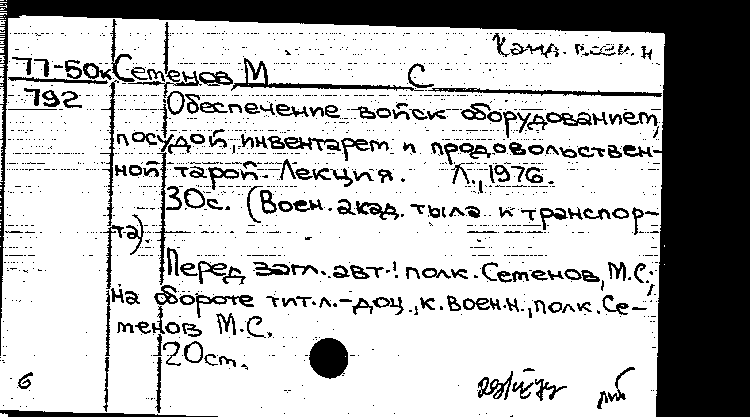 Канд. воен. н
77-50к Семенов, М С
792
Обеспечение войск оборудованием,
посудой, инвентарем и продовольствен-
ной тарой. Лекция. Л., 1976.
30с. (Воен. акад. тыла и транспор-
та)
Перед загл. авт.: полк. Семенов, М.С.;
на обороте тит. л. - доц., к. воен. н., полк. Се-
менов М.С.
20 см.
6